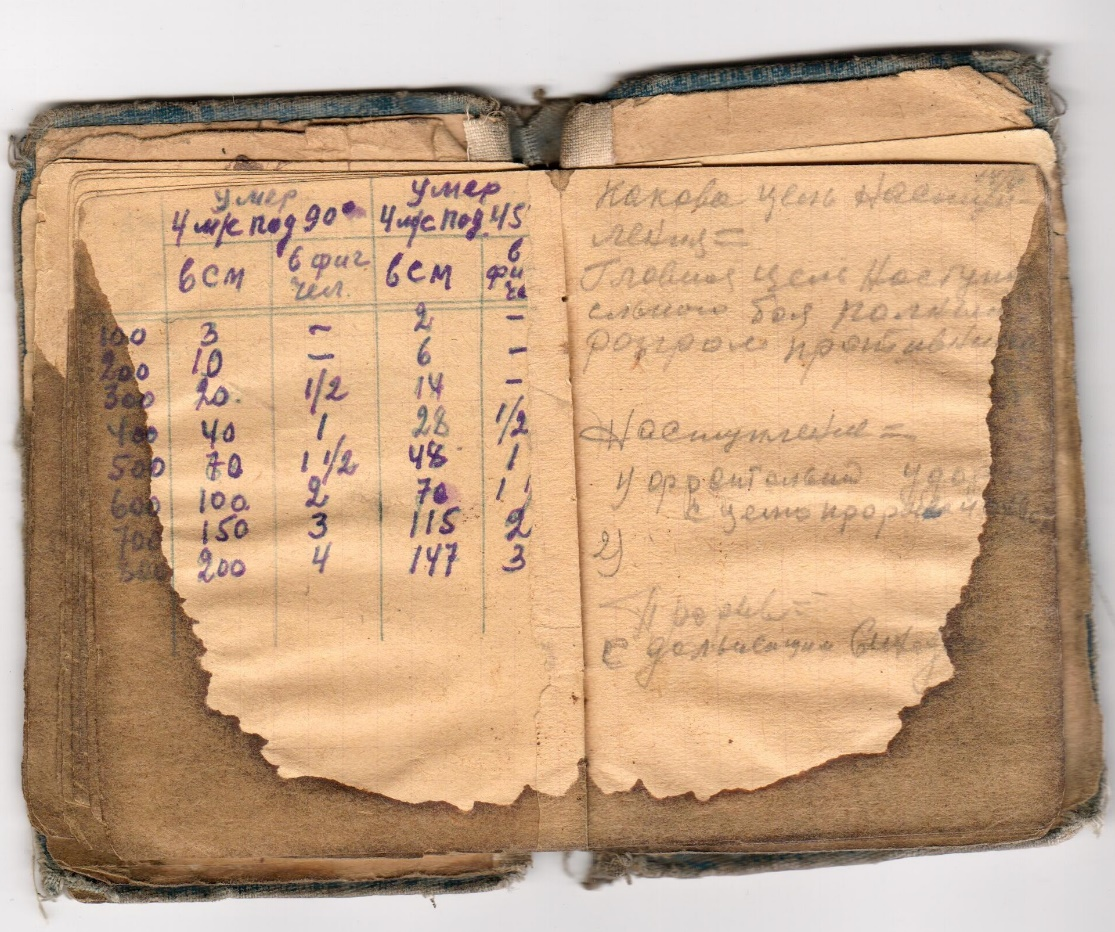 умер умер
4 м/с под 90° 4 м/с под 45
в см в фиг чел. в см в фи че
100 3 – 2 –
200 10 – 6 –
300 20. 1/2 14 –
400 40 1 28 1/2
500 70 1 1/2 48 1
600 100 2 70 1
700 150 3 115 2
200 4 147 3
Какова цель Наступ-
ления =
Главная цель Наступ
ельного боя
розгром противник
Наступление =
1) фронтальный удар
с целью прорыва
2)
Прорыв =
с дальнейшим